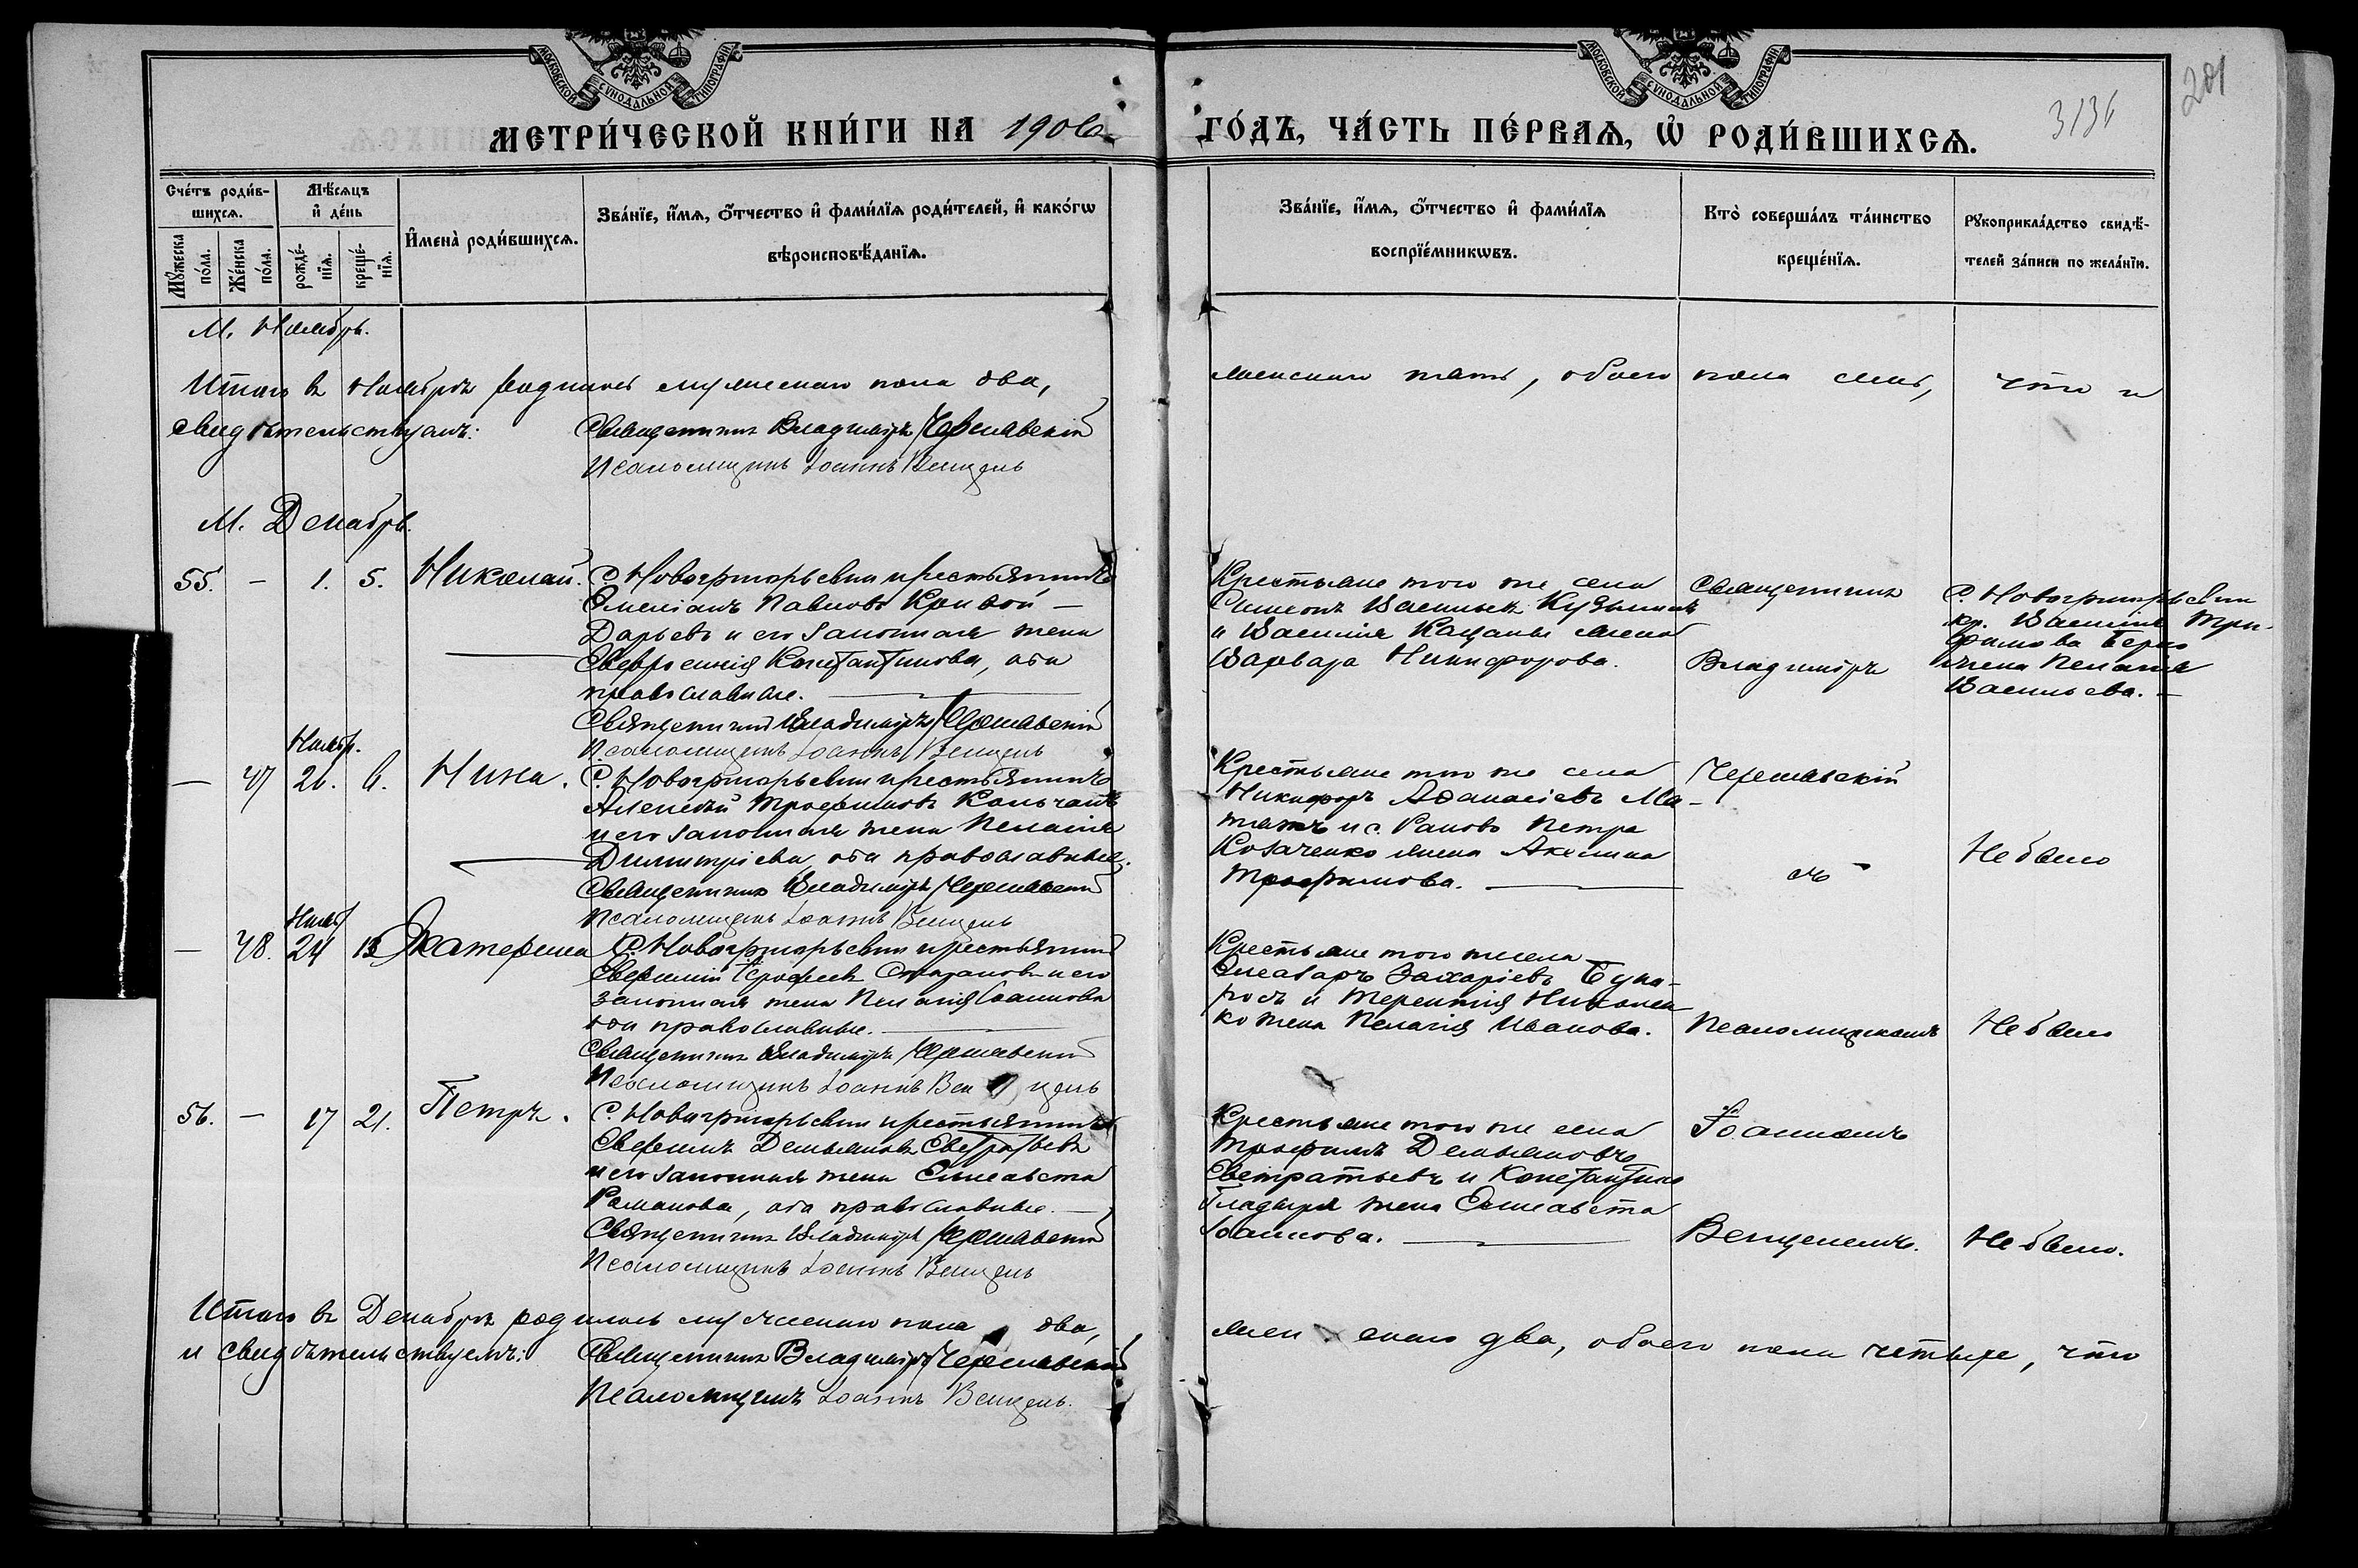 МОСКОВСКОЙ СУНОДАЛЬНОЙ ТИПОГРАФІИ
МОСКОВСКОЙ СУНОДАЛЬНОЙ ТИПОГРАФІИ
201
3136
МЕТРИ́ЧЕСКОЙ КНИ́ГИ НА 1906
ГО́ДЪ, ЧА́СТЬ ПЕ́РВАѦ, Ѡ҆ РОДИ́ВШИХСѦ.
Сче́тъ роди́в-
шихсѧ.
Мѣ́сѧцъ
и҆ де́нь
И҆мена̀ роди́вшихсѧ.
Зва́нїе, и҆́мѧ, ѻ҆́тчество и҆ фами́лїѧ роди́телей, и҆ како́гѡ
вѣроисповѣ́данїѧ.
Мꙋ́жеска
по́ла.
Же́нска
по́ла.
рожде́-
нїѧ.
креще́-
нїѧ.
Зва́нїе, и҆́мѧ, ѻ҆́тчество и҆ фами́лїѧ
воспрїе́мникѡвъ.
Кто̀ соверша́лъ та́инство
креще́нїѧ.
Рꙋкоприкла́дство свидѣ́-
телей за́писи по жела́нїю.
М. Ноябрь.
Итого въ Ноябрѣ родилось мужескаго пола два,
женскаго пять, обоего пола семь, что и
свидѣтельствуемъ:
Священникъ Владиміръ Чернявскій
Псаломщикъ Іоаннъ Венцель
М. Декабрь.
55. - 1. 5. Николай.
С. Новогригорьевки крестьянинъ
Емеліанъ Павловъ Кривой -
Дарьевъ и его законная жена
Евфросинія Константинова, оба
православные.
Священникъ Владиміръ Чернявскій
Псаломщикъ Іоаннъ Венцель
Крестьяне того же села
Симеонъ Васильевъ Кузьминъ
и Василія Кацапы жена
Варвара Никифорова.
Священникъ
Владиміръ
С. Новогригорьевки
кр. Василій Три-
фонова
жена Пелагія
Васильева.
Ноябр.
- 47 26. 6. Нина.
С. Новогригорьевки крестьянинъ
Алексѣй Трофимовъ
и его законная жена Пелагія
Димитріева, оба православные.
Священникъ Владиміръ Чернявскій
Псаломщикъ Іоаннъ Венцель
Крестьяне того же села
Никифоръ Аѳанасіевъ Ма-
и с. Раково Петра
Козаченко жена Акелина
Трофимова.
Чернявскій
съ
Не было
Ноябр
- 48. 24 13 Екатерина
С. Новогригорьевки крестьянинъ
и его
законная жена Пелагія Іоаннова
оба православные.
Священникъ Владиміръ Чернявскій
Псаломщикъ Іоаннъ Венцель
Крестьяне того же села
Елеазаръ Захаріевъ
и Терентія Николаен-
ко жена Пелагія Иванова.
Псаломщикомъ
Не было
56. - 17 21. Петръ.
С. Новогригорьевки крестьянинъ
Демьяновъ Евстратьевъ
и его законная жена Елисавета
Романова, оба православные.
Священникъ Владиміръ Чернявскій
Псаломщикъ Іоаннъ Венцель
Крестьяне того же села
Трофимъ Демьяновъ
Евстратьевъ и Константина
Гладыря жена Елисавета
Іоаннова.
Іоанномъ
Венцелемъ.
Не было.
Итого въ Декабрѣ родилось мужескаго пола два,
женскаго два, обоего пола четыре, что
и свидѣтельствуемъ:
Священникъ Владиміръ Чернявскій
Псаломщикъ Іоаннъ Венцель.